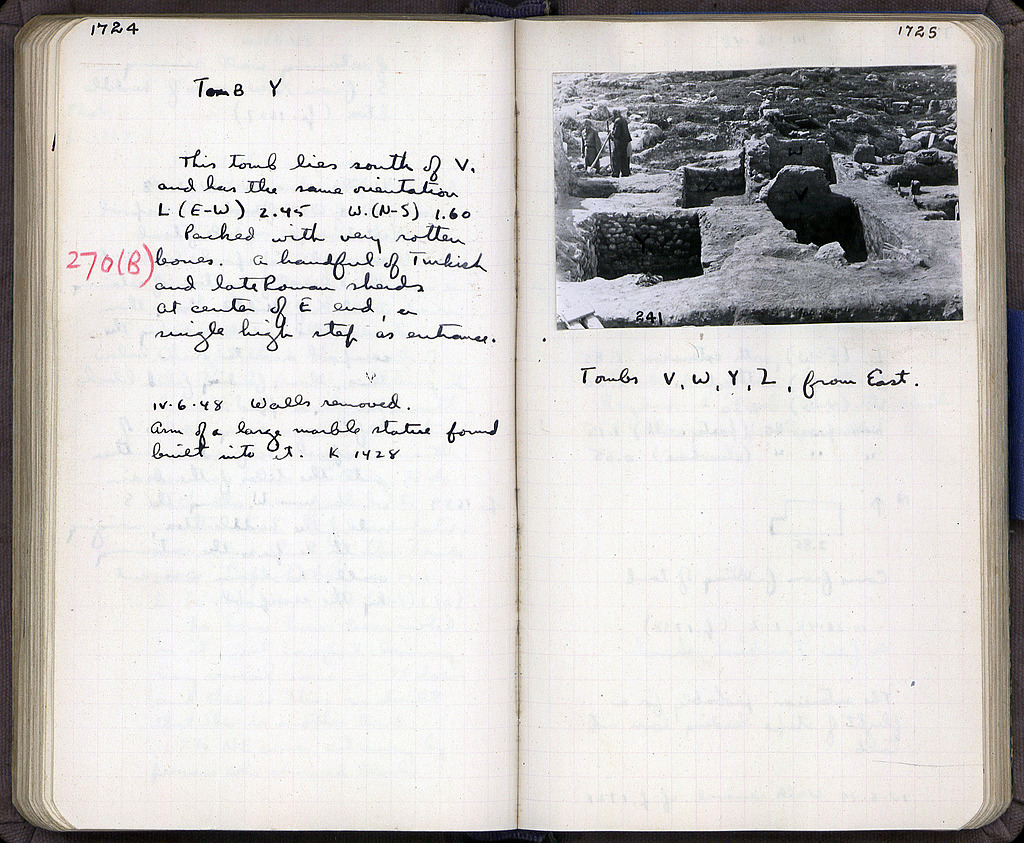 1724
Tomb Y
This tomb lies south of V.
and has the same orientation
L (E-W) 2.45 W.(N-S) 1.60
Packed with very rotten
270(B) bones. A handful of Turkish
and late Roman sherds
at center of E end, a
single high step as entrance.
IV·6·48 Walls removed.
Arm of a large marble statue found
built into it. K 1428
1725
W
V
241
Tombs V, W, Y, Z, from East.